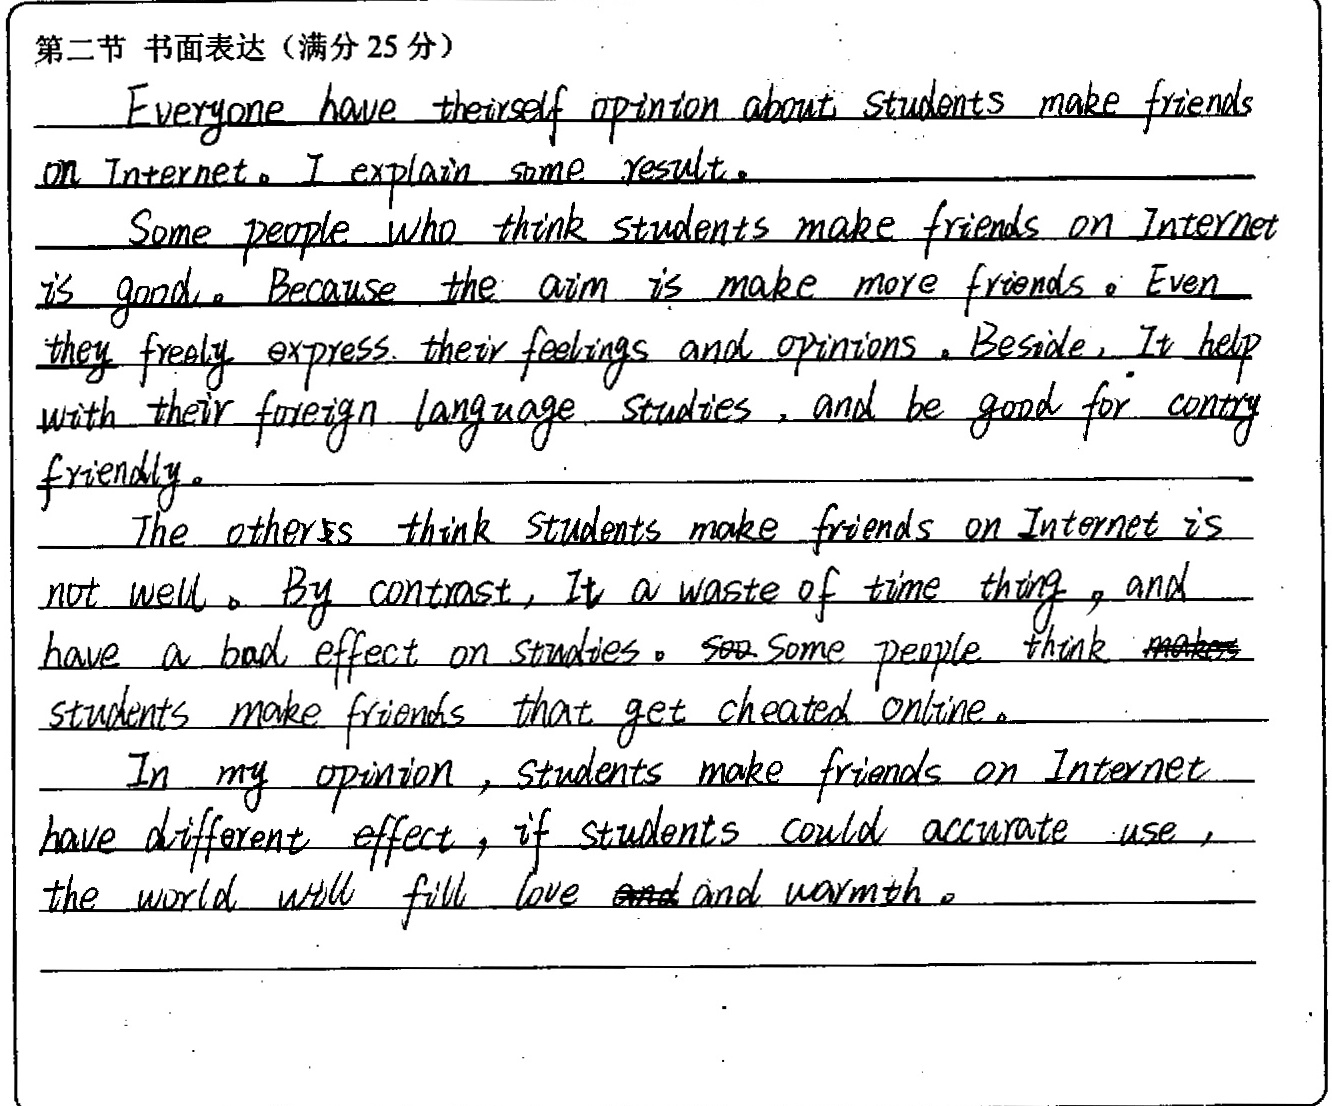 第二节 书面表达（满分 25 分）
Everyone have theirself opinion about students make friends
on Internet。I explain some result。
Some people who think students make friends on Internet
is good。Because the aim is make more friends。Even
they freely express their feelings and opinions。Beside, It help
with their foreign language studies, and be good for contry
friendly。
The others think students make friends on Internet is
not well。By contrast, It a waste of time thing, and
have a bad effect on studies。Some people think
students make friends that get cheated online。
In my opinion, students make friends on Internet
have different effect, if students could accurate use,
the world will fill love and warmth。